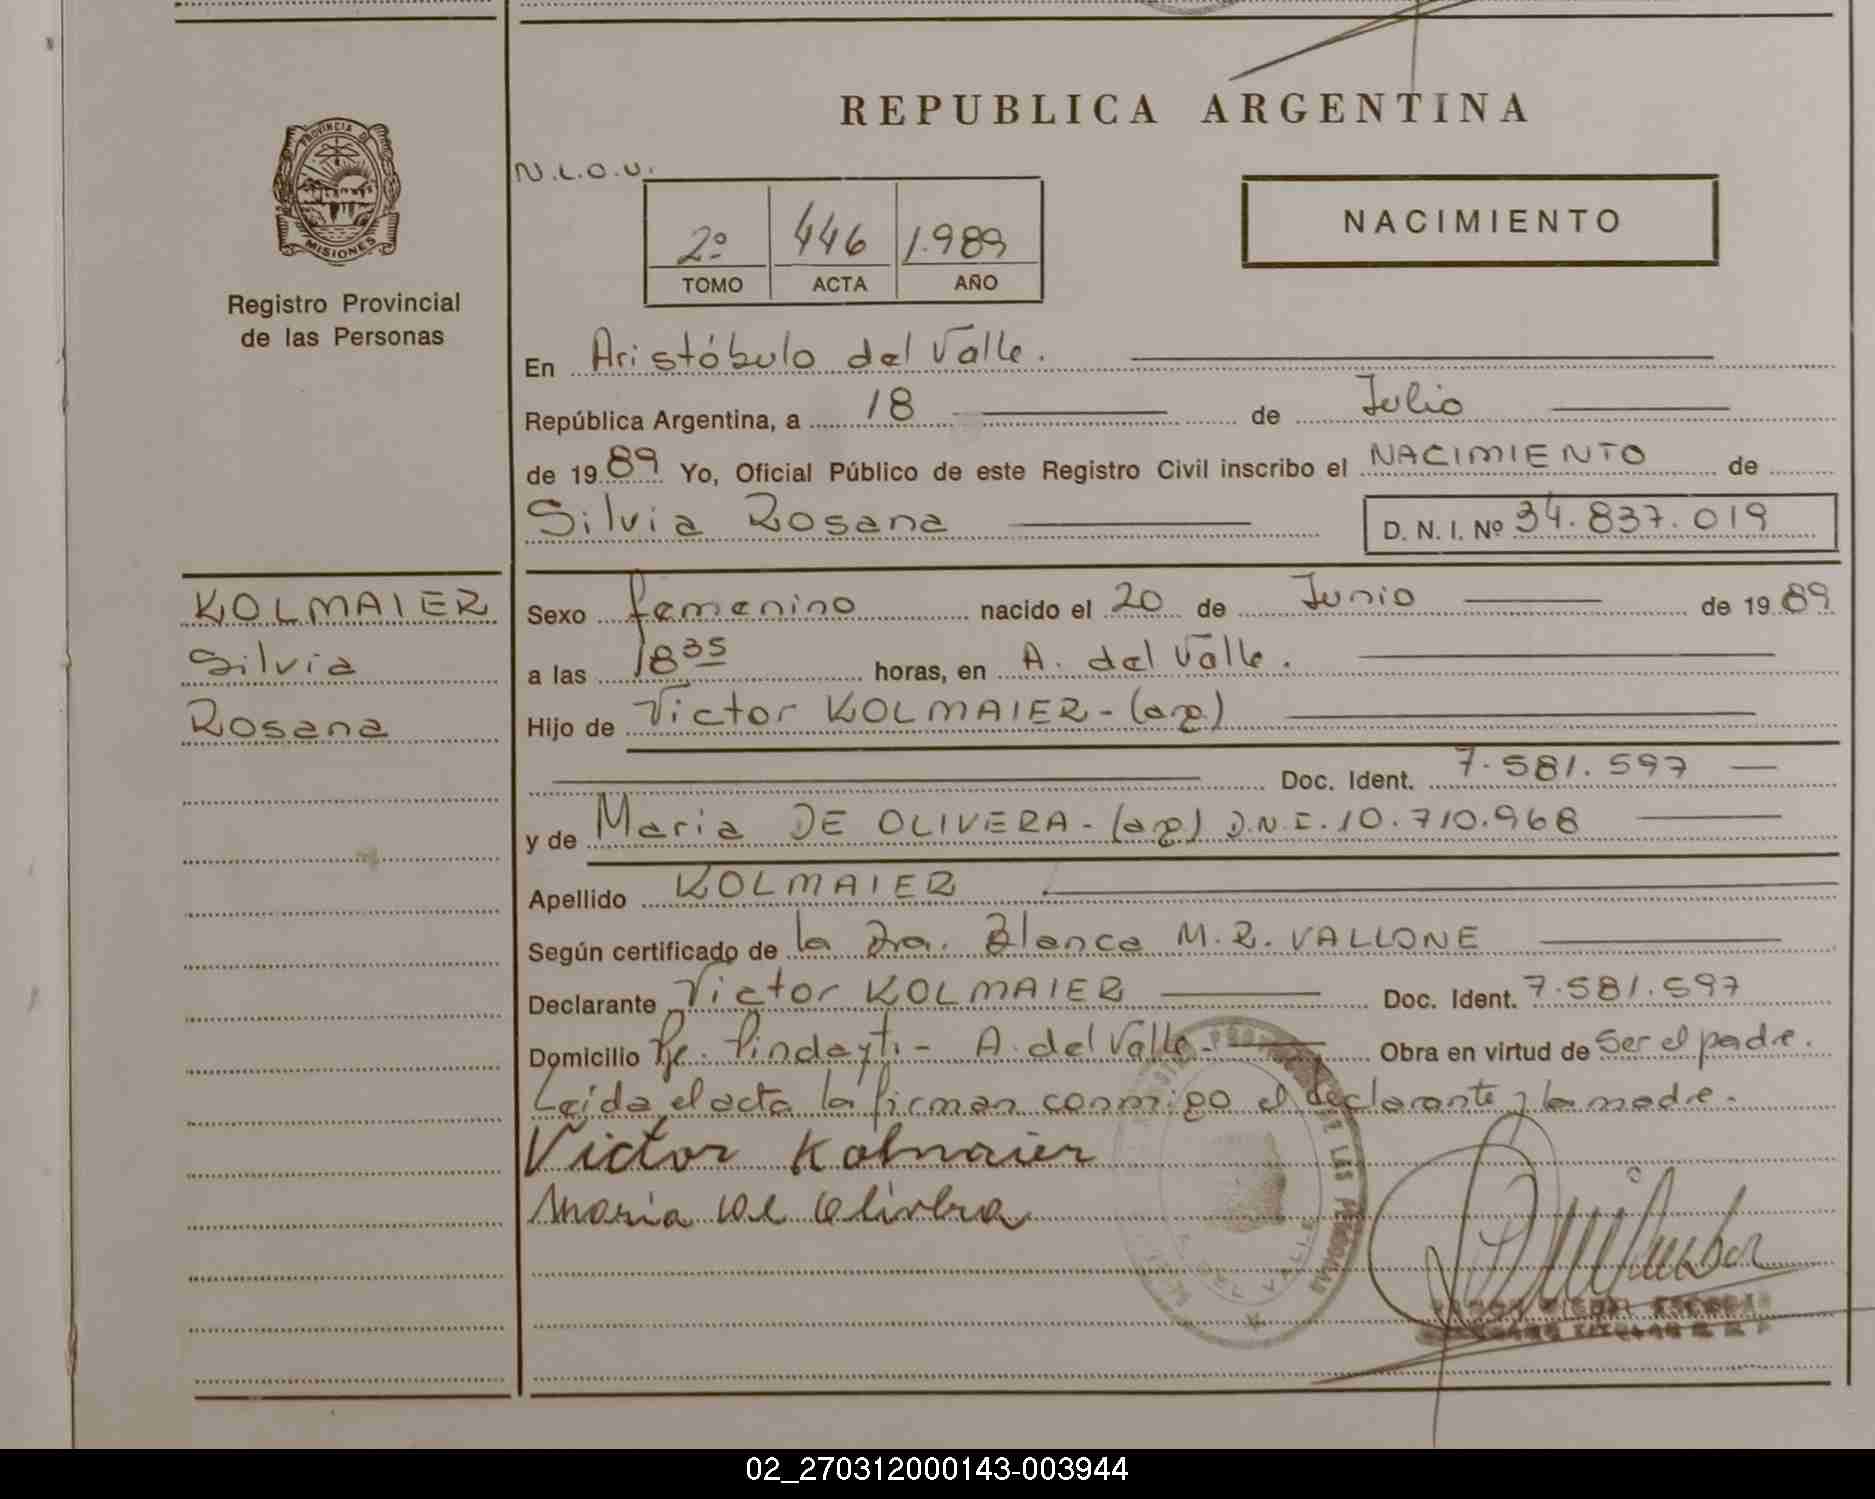 REPUBLICA ARGENTINA
PROVINCIA DE
MISIONES
Registro Provincial
de las Personas
N.L.O.U.
2º 446 1.989
TOMO ACTA AÑO
NACIMIENTO
En Aristóbulo del Valle.
República Argentina, a 18 de Julio
de 1989 Yo, Oficial Público de este Registro Civil inscribo el NACIMIENTO de
Silvia Rosana D. N. I. Nº 34.837.019
KOLMAIER
Silvia
Rosana
Sexo femenino nacido el 20 de Junio de 1989
a las 18 35 horas, en A. del Valle.
Hijo de Victor KOLMAIER - (arg)
Doc. Ident. 7.581.597
y de Maria DE OLIVERA - (arg) D.N.I. 10.710.968
Apellido KOLMAIER
Según certificado de la Dra. Blanca M.R. VALLONE
Declarante Victor KOLMAIER Doc. Ident. 7.581.597
Domicilio Pje. Pindayti - A. del Valle - Obra en virtud de Ser el padre.
Leída el acta la firman conmigo el declarante y la madre.
Victor Kolmaier
Maria de Olivera
DE LAS PERSONAS
02_270312000143-003944